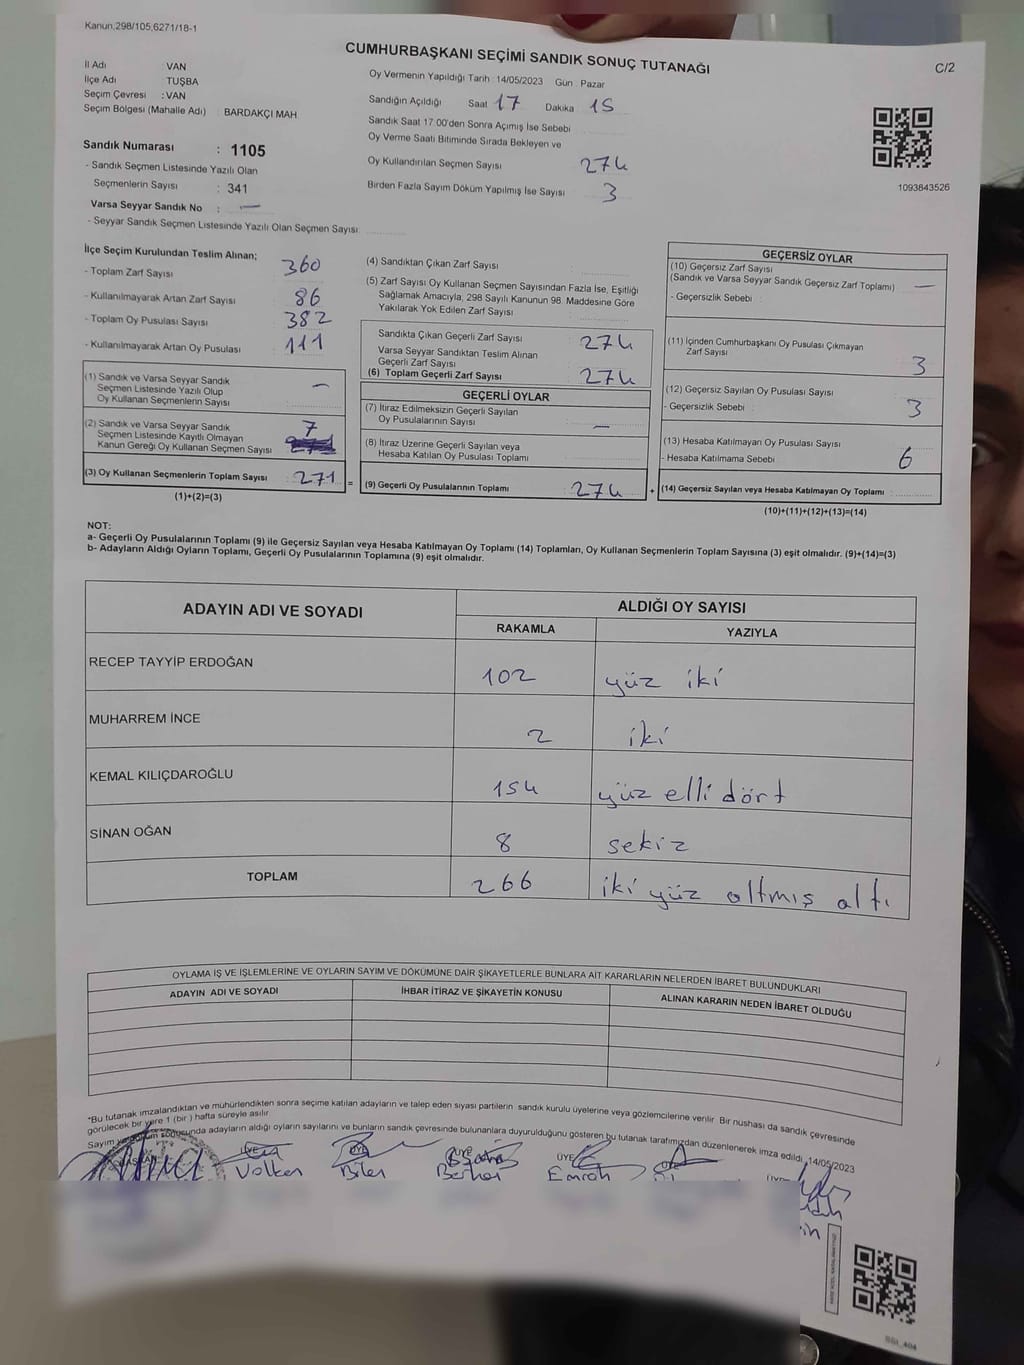 Kanun,298/105,6271/18-1
CUMHURBAŞKANI SEÇİMİ SANDIK SONUÇ TUTANAĞI
C/2
İl Adı VAN
İlçe Adı TUŞBA
Seçim Çevresi : VAN
Seçim Bölgesi (Mahalle Adı) : BARDAKÇI MAH
Oy Vermenin Yapıldığı Tarih : 14/05/2023 Gün : Pazar
Sandığın Açıldığı Saat 17 Dakika 15
Sandık Saat 17.00'den Sonra Açımış İse Sebebi
Oy Verme Saati Bitiminde Sırada Bekleyen ve
Oy Kullandırılan Seçmen Sayısı 274
Birden Fazla Sayım Döküm Yapılmış İse Sayısı 3
1093843526
Sandık Numarası : 1105
- Sandık Seçmen Listesinde Yazılı Olan
Seçmenlerin Sayısı : 341
Varsa Seyyar Sandık No : —
- Seyyar Sandık Seçmen Listesinde Yazılı Olan Seçmen Sayısı:
İlçe Seçim Kurulundan Teslim Alınan;
- Toplam Zarf Sayısı 360
- Kullanılmayarak Artan Zarf Sayısı 86
- Toplam Oy Pusulası Sayısı 382
- Kullanılmayarak Artan Oy Pusulası 111
(1) Sandık ve Varsa Seyyar Sandık
Seçmen Listesinde Yazılı Olup
Oy Kullanan Seçmenlerin Sayısı —
(2) Sandık ve Varsa Seyyar Sandık
Seçmen Listesinde Kayıtlı Olmayan
Kanun Gereği Oy Kullanan Seçmen Sayısı 7
(3) Oy Kullanan Seçmenlerin Toplam Sayısı 271 =
(1)+(2)=(3)
(4) Sandıktan Çıkan Zarf Sayısı
(5) Zarf Sayısı Oy Kullanan Seçmen Sayısından Fazla İse, Eşitliği
Sağlamak Amacıyla, 298 Sayılı Kanunun 98. Maddesine Göre
Yakılarak Yok Edilen Zarf Sayısı
Sandıkta Çıkan Geçerli Zarf Sayısı 274
Varsa Seyyar Sandıktan Teslim Alınan
Geçerli Zarf Sayısı
(6) Toplam Geçerli Zarf Sayısı 274
GEÇERLİ OYLAR
(7) İtiraz Edilmeksizin Geçerli Sayılan
Oy Pusulalarının Sayısı —
(8) İtiraz Üzerine Geçerli Sayılan veya
Hesaba Katılan Oy Pusulası Toplamı
(9) Geçerli Oy Pusulalarının Toplamı 274 +
GEÇERSİZ OYLAR
(10) Geçersiz Zarf Sayısı
(Sandık ve Varsa Seyyar Sandık Geçersiz Zarf Toplamı) —
- Geçersizlik Sebebi :
(11) İçinden Cumhurbaşkanı Oy Pusulası Çıkmayan
Zarf Sayısı 3
(12) Geçersiz Sayılan Oy Pusulası Sayısı
- Geçersizlik Sebebi 3
(13) Hesaba Katılmayan Oy Pusulası Sayısı
- Hesaba Katılmama Sebebi 6
(14) Geçersiz Sayılan veya Hesaba Katılmayan Oy Toplamı
(10)+(11)+(12)+(13)=(14)
NOT:
a- Geçerli Oy Pusulalarının Toplamı (9) ile Geçersiz Sayılan veya Hesaba Katılmayan Oy Toplamı (14) Toplamları, Oy Kullanan Seçmenlerin Toplam Sayısına (3) eşit olmalıdır. (9)+(14)=(3)
b- Adayların Aldığı Oyların Toplamı, Geçerli Oy Pusulalarının Toplamına (9) eşit olmalıdır.
ADAYIN ADI VE SOYADI ALDIĞI OY SAYISI
RAKAMLA YAZIYLA
RECEP TAYYİP ERDOĞAN 102 yüz iki
MUHARREM İNCE 2 iki
KEMAL KILIÇDAROĞLU 154 yüz elli dört
SİNAN OĞAN 8 sekiz
TOPLAM 266 iki yüz altmış altı
OYLAMA İŞ VE İŞLEMLERİNE VE OYLARIN SAYIM VE DÖKÜMÜNE DAİR ŞİKAYETLERLE BUNLARA AİT KARARLARIN NELERDEN İBARET BULUNDUKLARI
ADAYIN ADI VE SOYADI İHBAR İTİRAZ VE ŞİKAYETİN KONUSU ALINAN KARARIN NEDEN İBARET OLDUĞU
*Bu tutanak imzalandıktan ve mühürlendikten sonra seçime katılan adayların ve talep eden siyasi partilerin sandık kurulu üyelerine veya gözlemcilerine verilir. Bir nushası da sandık çevresinde
görülecek bir yere 1 (bir) hafta süreyle asılır.
Sayım ve döküm sonucunda adayların aldığı oyların sayılarını ve bunların sandık çevresinde bulunanlara duyurulduğunu gösteren bu tutanak tarafımızdan düzenlenerek imza edildi. 14/05/2023
ÜYE
Volkan Bilen Emrah